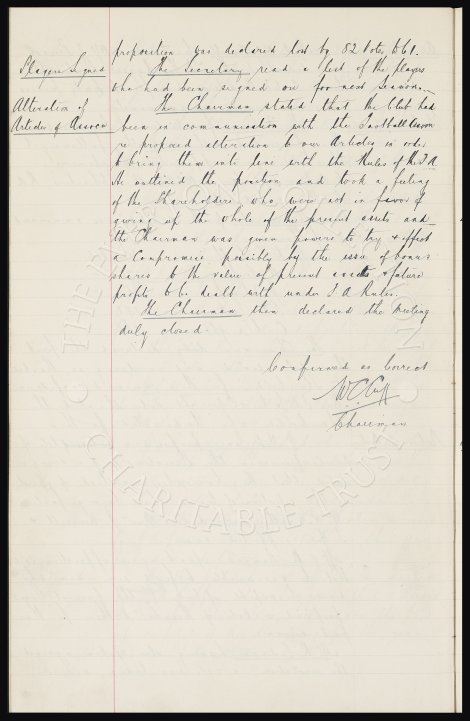 proposition was declared lost by 82 Votes to 61.
Players Signed
The Secretary read a list of the players
who had been signed on for next season.
Alteration of
Articles of Assocn
The Chairman stated that the Club had
been in communication with the Football Assocn
re proposed alteration to our Articles in order
to bring them into line with the Rules of the F.A.
He outlined the position and took a feeling
of the Shareholders who were not in favor of
giving up the whole of the present assets and
the Chairman was given powers to try & effect
a Compromise possibly by the issue of bonus
shares to the value of present assets & future
profits to be dealt with under F.A Rules.
The Chairman then declared the Meeting
duly closed.
Confirmed as Correct
W C Cuff
Chairman
CHARITABLE TRUST